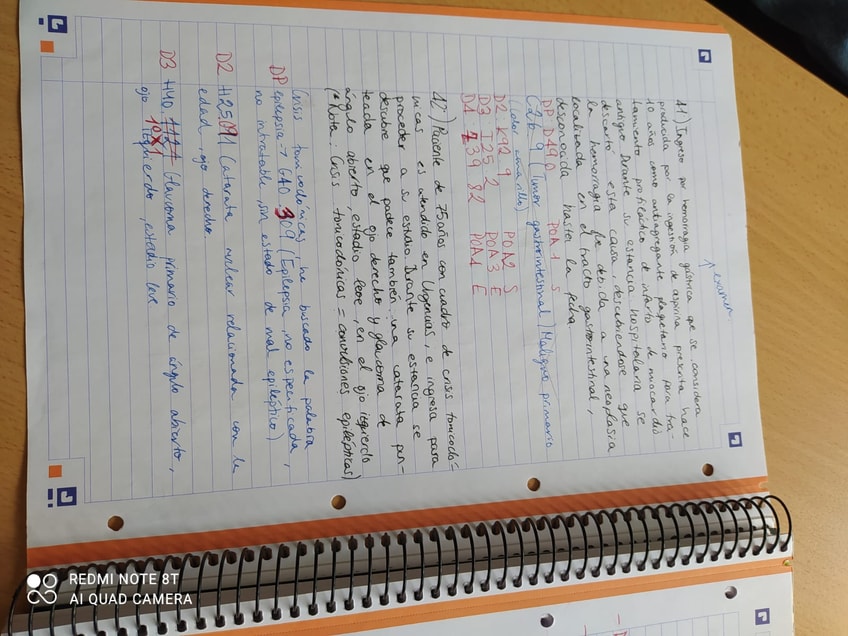 ↑ examen
41) Ingreso por hemorragia gástrica que se considera
producida por la ingestión de aspirina prescrita hace
10 años como antiagregante plaquetario para tra-
tamiento profiláctico de infarto de miocardio
antiguo. Durante su estancia hospitalaria se
descartó esta causa, descubriéndose que
la hemorragia fue debida a una neoplasia
localizada en el tracto gastrointestinal,
desconocida hasta la fecha.
DP D49.0 POA 1 S
C26.9 (Tumor gastrointestinal) Maligno primario
(color amarillo)
D2 K92.9 POA2 S
D3 I25.2 POA3 E
D4 Z39.82 POA4 E
42) Paciente de 75 años con cuadro de crisis tonicocló-
nicas es atendido en Urgencias, e ingresa para
proceder a su estudio. Durante su estancia se
descubre que padece también una catarata pun-
teada en el ojo derecho y glaucoma de
ángulo abierto, estadio leve, en el ojo izquierdo
(*Nota: Crisis tonicoclónicas = convulsiones epilépticas)
Crisis tonicoclónicas, he buscado la palabra
DP epilepsia → G40.309 (Epilepsia, no especificada,
no intratable, sin estado de mal epiléptico)
D2 H25.091 Catarata nuclear relacionada con la
edad, ojo derecho.
D3 H40 10X1 Glaucoma primario de ángulo abierto,
ojo izquierdo, estadio leve
REDMI NOTE 8T
AI QUAD CAMERA